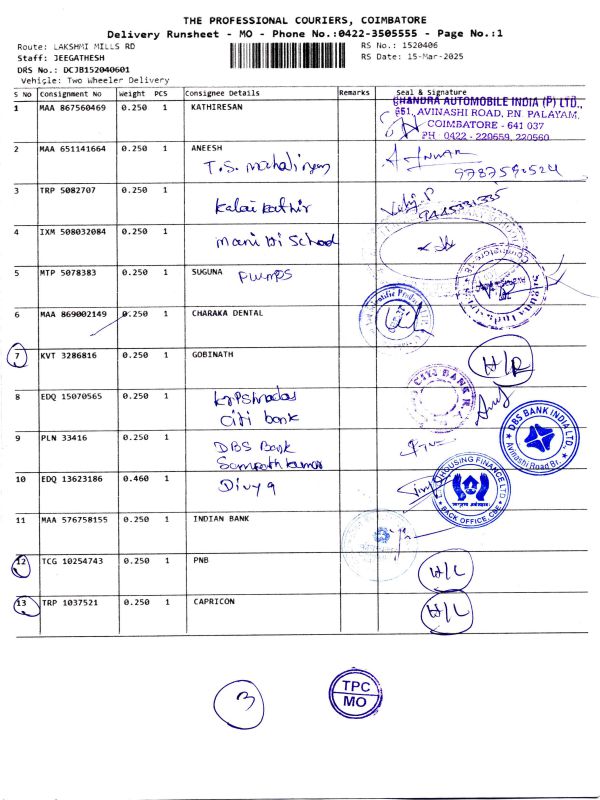 THE PROFESSIONAL COURIERS, COIMBATORE
Delivery Runsheet - MO - Phone No.:0422-3505555 - Page No.:1
Route: LAKSHMI MILLS RD
RS No.: 1520406
Staff: JEEGATHESH
RS Date: 15-Mar-2025
DRS No.: DCJB152040601
Vehicle: Two Wheeler Delivery
S No Consignment No Weight PCS Consignee Details Remarks Seal & Signature
1 MAA 867560469 0.250 1 KATHIRESAN
CHANDRA AUTOMOBILE INDIA (P) LTD.,
AVINASHI ROAD, P.N. PALAYAM,
COIMBATORE - 641 037
PH 0422 - 220559, 220560
2 MAA 651141664 0.250 1 ANEESH
T.S. 
3 TRP 5082707 0.250 1
Kalai Kathir
9445331335
4 IXM 508032084 0.250 1
Mani Hi School
5 MTP 5078383 0.250 1 SUGUNA PUMPS
6 MAA 869002149 0.250 1 CHARAKA DENTAL
7 KVT 3286816 0.250 1 GOBINATH H/R
8 EDQ 15070565 0.250 1
Citi bank
CITI BANK
9 PLN 33416 0.250 1
DBS Bank
Sampathkumar
DBS BANK INDIA LTD.
Avinashi Road Br.
10 EDQ 13623186 0.460 1 Divya
HOUSING FINANCE LTD.
BACK OFFICE, CBE
11 MAA 576758155 0.250 1 INDIAN BANK
12 TCG 10254743 0.250 1 PNB H/L
13 TRP 1037521 0.250 1 CAPRICON H/L
3
TPC
MO